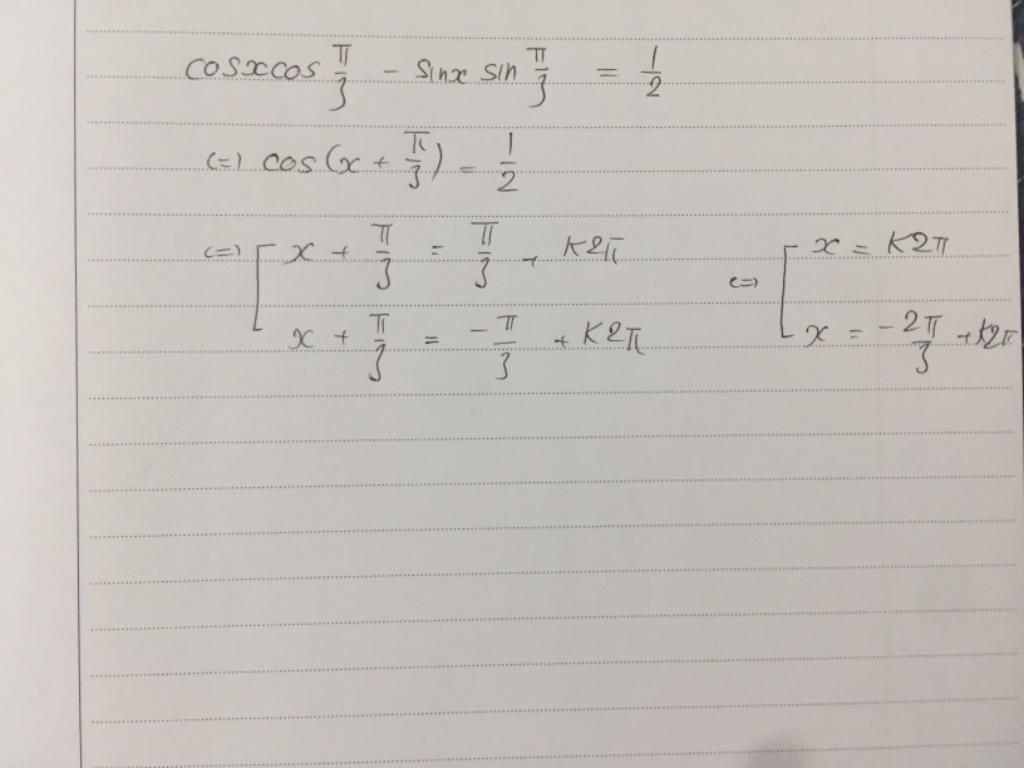 cosxcos π/3 - sinx sin π/3 = 1/2
<=> cos(x + π/3) = 1/2
<=> [ x + π/3 = π/3 + k2π <=> [ x = k2π
x + π/3 = -π/3 + k2π x = -2π/3 + k2π